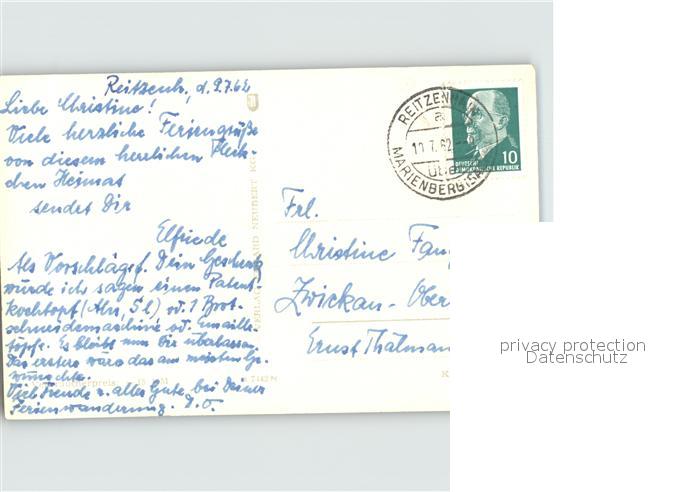 Reitzenh., d. 9.7.62
Liebe Christine!
Viele herzliche Feriengrüße
von diesem herrlichen Fleck-
chen Heimat
sendet Dir
Elfriede
Als Vorschläge f. Dein Geschenk
würde ich sagen einen Patent-
kochtopf (Alu, 5 l) od. 1 Brot-
schneidemaschine od. Emaille-
töpfe. Es bleibt nun Dir überlassen.
Das erstere wäre das am meisten Ge-
wünschte.
Viel Freude u. alles Gute bei Deiner
Ferienwanderung. D. O.
VERLAG
NEUBERT
REITZENHAIN
a
10.7.62
über
MARIENBERG (SA
DEUTSCHE
DEMOKRATISCHE REPUBLIK
10
Frl.
Christine
Zwickau-Ober
Ernst Thälman
K
privacy protection
Datenschutz